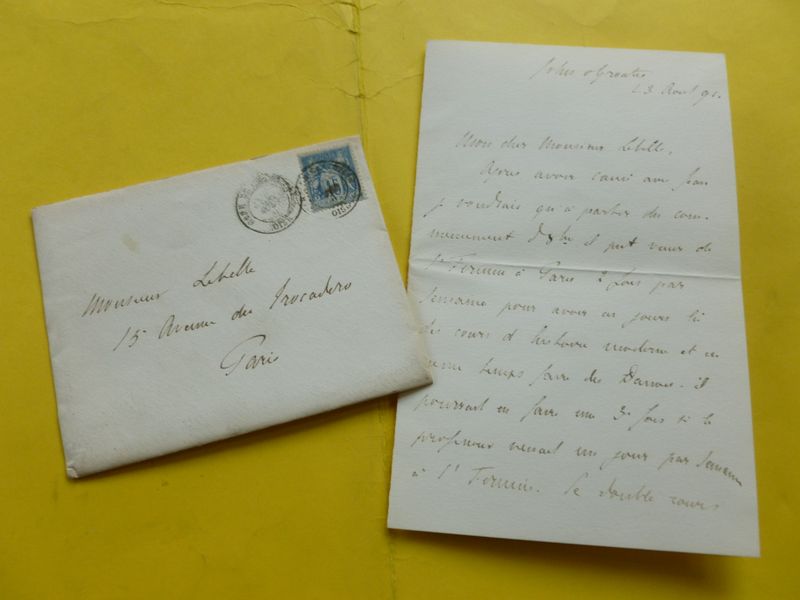 Monsieur Lebelle
15 Avenue du Trocadero
Paris
John o'Groats
Août 91.
Mon cher Monsieur Lebelle,
Après avoir causé avec Jean
je voudrais qu'à partir du com
mencement d'8bre il put venir de
St Fermin à Paris 2 fois par
semaine pour avoir ces jours là
des cours d'histoire moderne et en
même temps faire des Danses. il
pourrait en faire une 3e fois si le
professeur venait un jour par semaine
à St Fermin. Le double cours